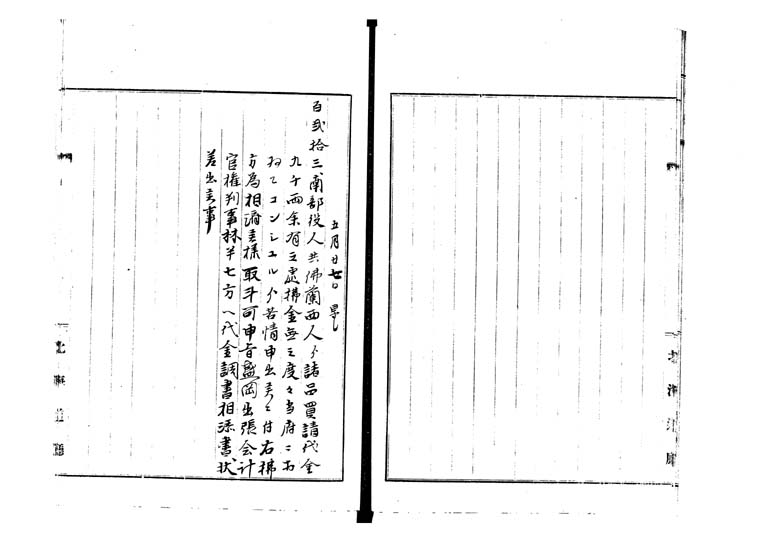 五月廿七日
百弐拾三南部役人共佛蘭西人ゟ諸品買請代金
九千両余有之處拂金無之度々当府ニお
ゐてコンシユルゟ苦情申出候ニ付右拂
方為相済候様取斗可申旨盛岡出張会计
官権判事林半七方へ代金調書相添書状
差出候事